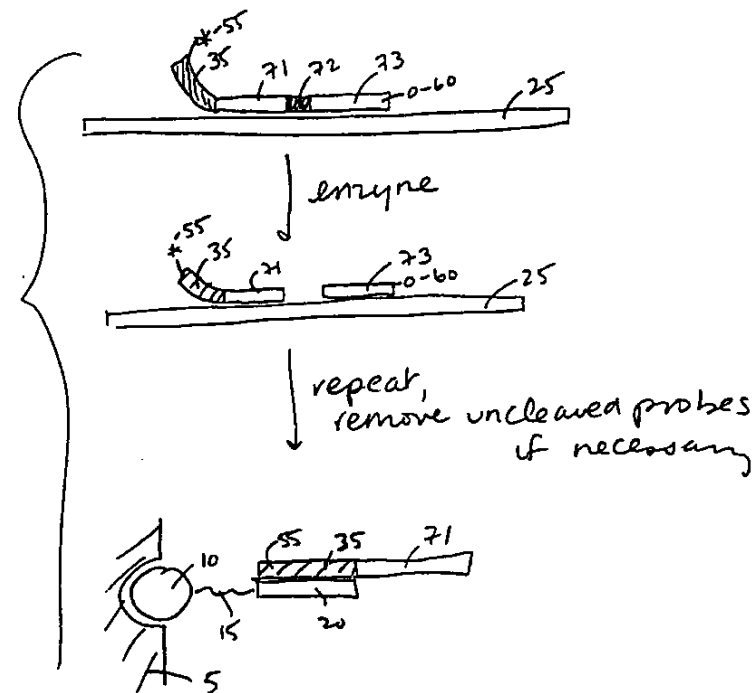 *-55
35
71
72
73
0-60
25
enzyne
*-55
35
71
73
0-60
25
repeat,
remove uncleaved probes
if necessary
10
55
35
71
15
20
5